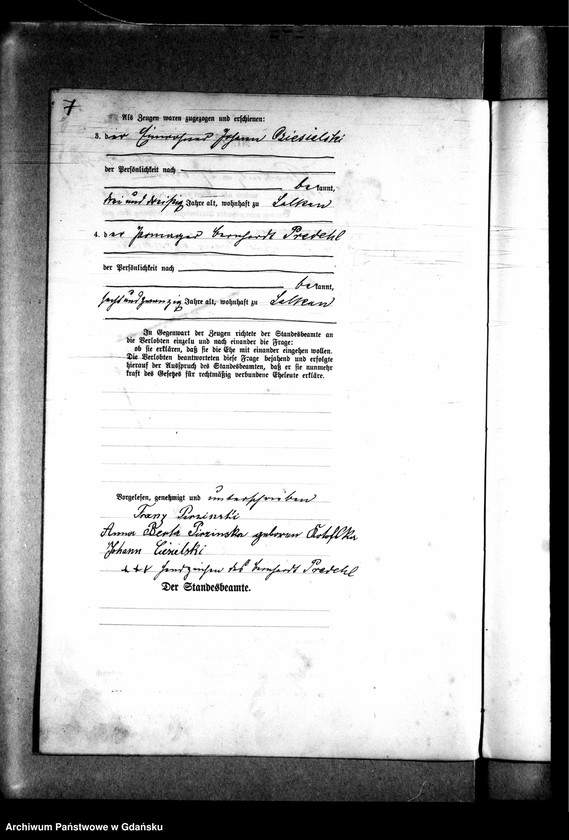 7
Als Zeugen waren zugezogen und erschienen:
3. der Einwohner Johann Ciesielski
der Persönlichkeit nach
bekannt,
drei und dreißig Jahre alt, wohnhaft zu Lalkau
4. der Bernhardt Predehl
der Persönlichkeit nach
bekannt,
sechs und zwanzig Jahre alt, wohnhaft zu Lalkau
In Gegenwart der Zeugen richtete der Standesbeamte an
die Verlobten einzeln und nach einander die Frage:
ob sie erklären, daß sie die Ehe mit einander eingehen wollen.
Die Verlobten beantworteten diese Frage bejahend und erfolgte
hierauf der Ausspruch des Standesbeamten, daß er sie nunmehr
kraft des Gesetzes für rechtmäßig verbundene Eheleute erkläre.
Vorgelesen, genehmigt und unterschrieben
Franz Pirzinski
Anna Berta Pirzinska geboren
Johann Cisielski
+++ Handzeichen des Bernhardt Predehl
Der Standesbeamte.
Archiwum Państwowe w Gdańsku